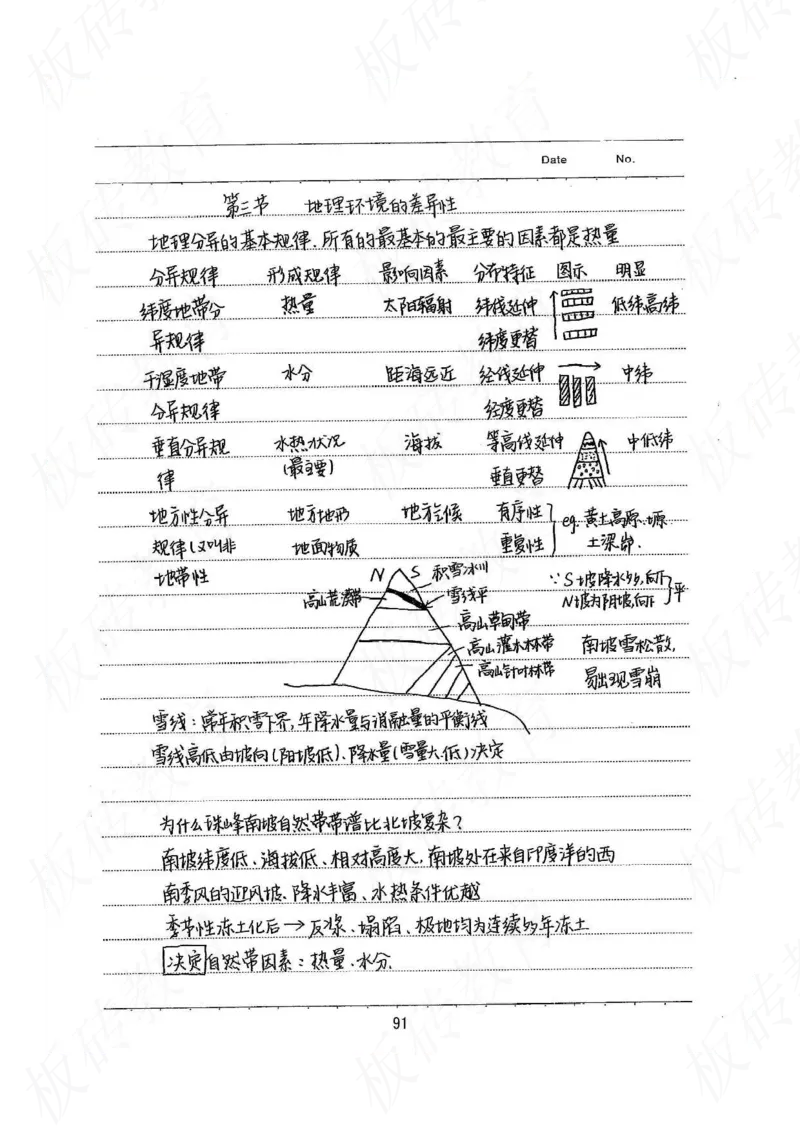 Date No.
第三节 地理环境的差异性
地理分异的基本规律.所有的最基本的最主要的因素都是热量
分异规律 形成规律 影响因素 分布特征 图示 明显
纬度地带分 热量 太阳辐射 纬线延伸 低纬高纬
异规律 纬度更替
干湿度地带 水分 距海远近 经线延伸 中纬
分异规律 经度更替
垂直分异规 水热状况 海拔 等高线延伸 中低纬
律 (最主要) 垂直更替
地方性分异 地方地形 地方气候 有序性 eg.黄土高原.塬
规律(又叫非 地面物质 重复性 土深峁.
地带性
N S 积雪冰川
高山荒漠带 雪线平
∵S坡降水多,向下
N坡为阴坡,向下 平
高山草甸带
高山灌木林带 南坡雪松散,
高山针叶林带 易出现雪崩
雪线:常年积雪下界,年降水量与消融量的平衡线
雪线高低由坡向(阳坡低)、降水量(雪量大低)决定
为什么珠峰南坡自然带带谱比北坡复杂?
南坡纬度低、海拔低、相对高度大,南坡处在来自印度洋的西
南季风的迎风坡、降水丰富、水热条件优越
季节性冻土化后→反浆、塌陷、极地均为连续多年冻土
决定自然带因素:热量.水分.
91
板砖教育